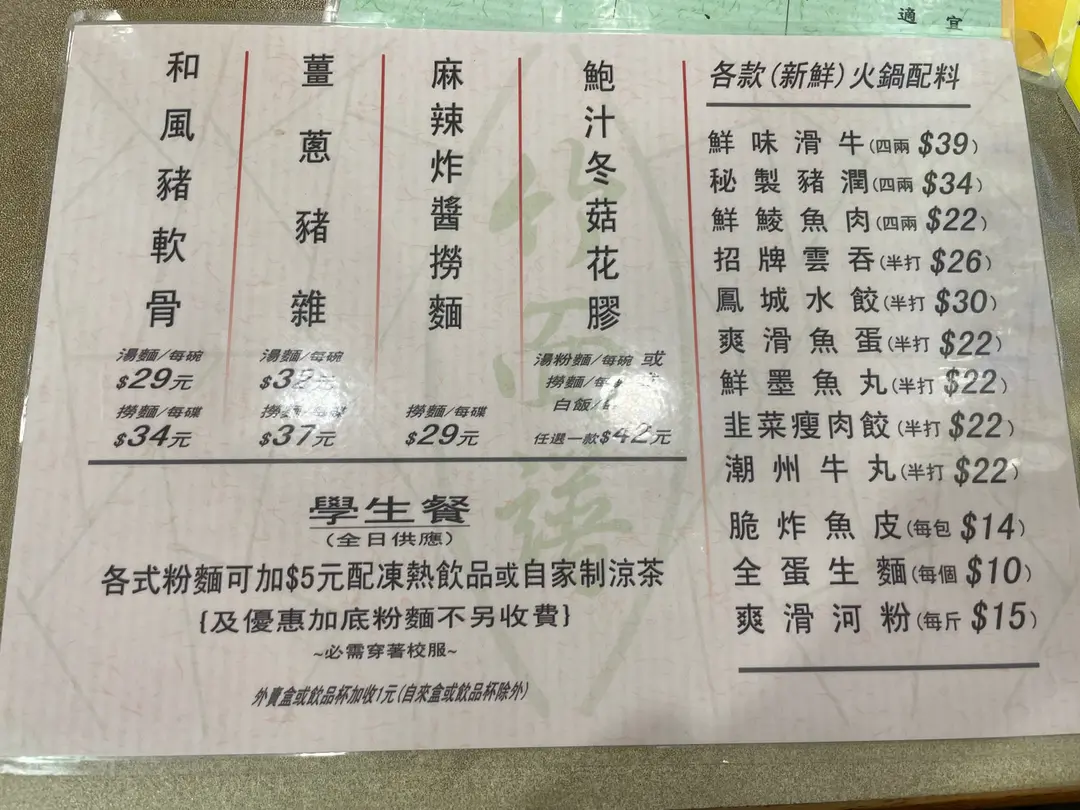 適宜
和風豬軟骨
湯麵/每碗
$29元
撈麵/每碟
$34元
薑蔥豬雜
湯麵/每碗
$32元
撈麵/每碟
$37元
麻辣炸醬撈麵
撈麵/每碟
$29元
鮑汁冬菇花膠
湯粉麵/每碗 或
撈麵/每
白飯/
任選一款$42元
各款(新鮮)火鍋配料
鮮味滑牛(四兩 $39)
秘製豬潤(四兩 $34)
鮮鯪魚肉(四兩 $22)
招牌雲吞(半打 $26)
鳳城水餃(半打 $30)
爽滑魚蛋(半打 $22)
鮮墨魚丸(半打 $22)
韭菜瘦肉餃(半打 $22)
潮州牛丸(半打 $22)
脆炸魚皮(每包 $14)
全蛋生麵(每個 $10)
爽滑河粉(每斤 $15)
學生餐
(全日供應)
各式粉麵可加$5元配凍熱飲品或自家制涼茶
{及優惠加底粉麵不另收費}
~必需穿著校服~
外賣盒或飲品杯加收1元(自來盒或飲品杯除外)